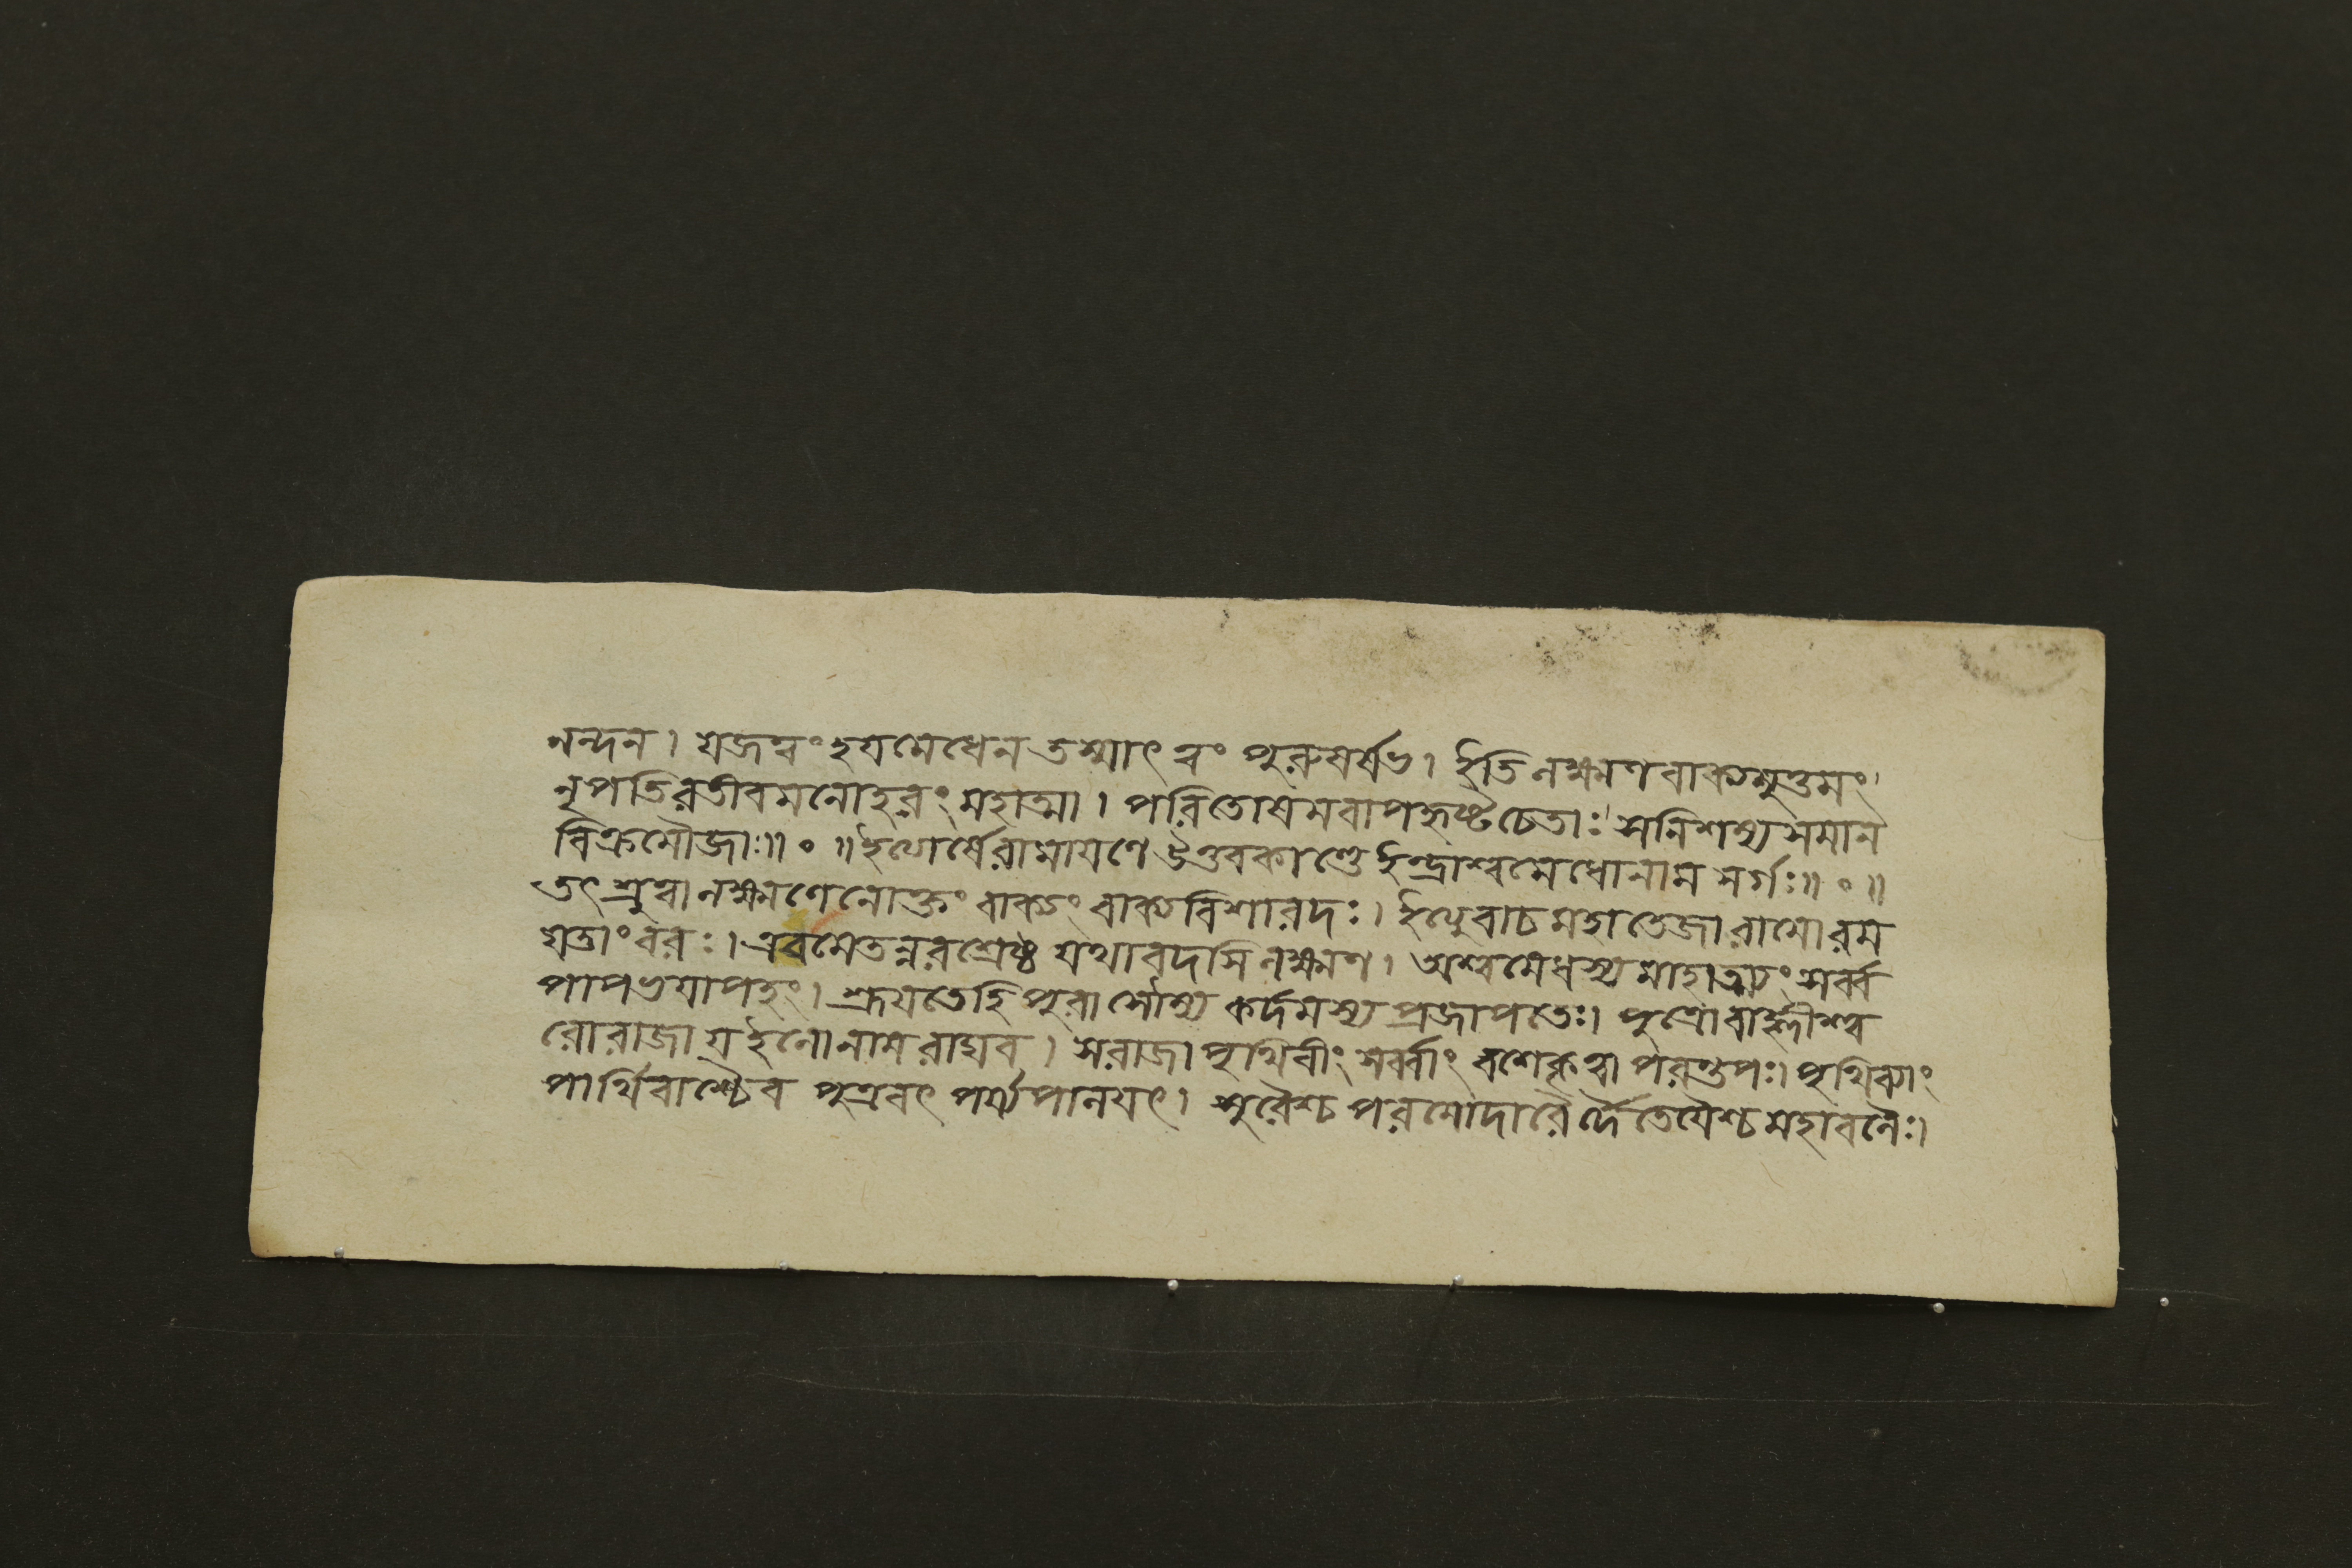 নন্দন। যজত্বং হযমেধেন তস্মাৎ ত্বং পুরুষর্ষভ। ইতি লক্ষ্মণবাক্যমুত্তমং
নৃপতিরতীবমনোহরং মহাত্মা। পরিতোষমবাপহৃষ্টচেতাঃ সনিশম্য সমান
বিক্রমৌজাঃ॥ ॰ ॥ ইত্যার্ষেরামাযণে উত্তরকাণ্ডে ইন্দ্রাশ্বমেধোনাম সর্গঃ॥ ॰ ॥
তৎ শ্রুত্বা লক্ষ্মণেনোক্তং বাক্যং বাক্যবিশারদঃ। ইত্যুবাচ মহাতেজা রামো রম
যতাং বরঃ। এবমেতন্নরশ্রেষ্ঠ যথা বদসি লক্ষ্মণ। অশ্বমেধস্য মাহাত্ম্যং সর্ব্ব
পাপভযাপহং। শ্রূযতেহি পুরা সৌম্য কর্দমস্য প্রজাপতেঃ। পুত্রো বাহ্লীশ্ব
রো রাজা য ইলো নাম রাঘব। স রাজা পৃথিবীং সর্ব্বাং বশে কৃত্বা পরন্তপঃ। পৃথিব্যাং
পার্থিবাশ্চৈব পুত্রবৎ পর্য্যপালযৎ। সুরৈশ্চ পরমোদারৈর্দৈতেযৈশ্চ মহাবলৈঃ।